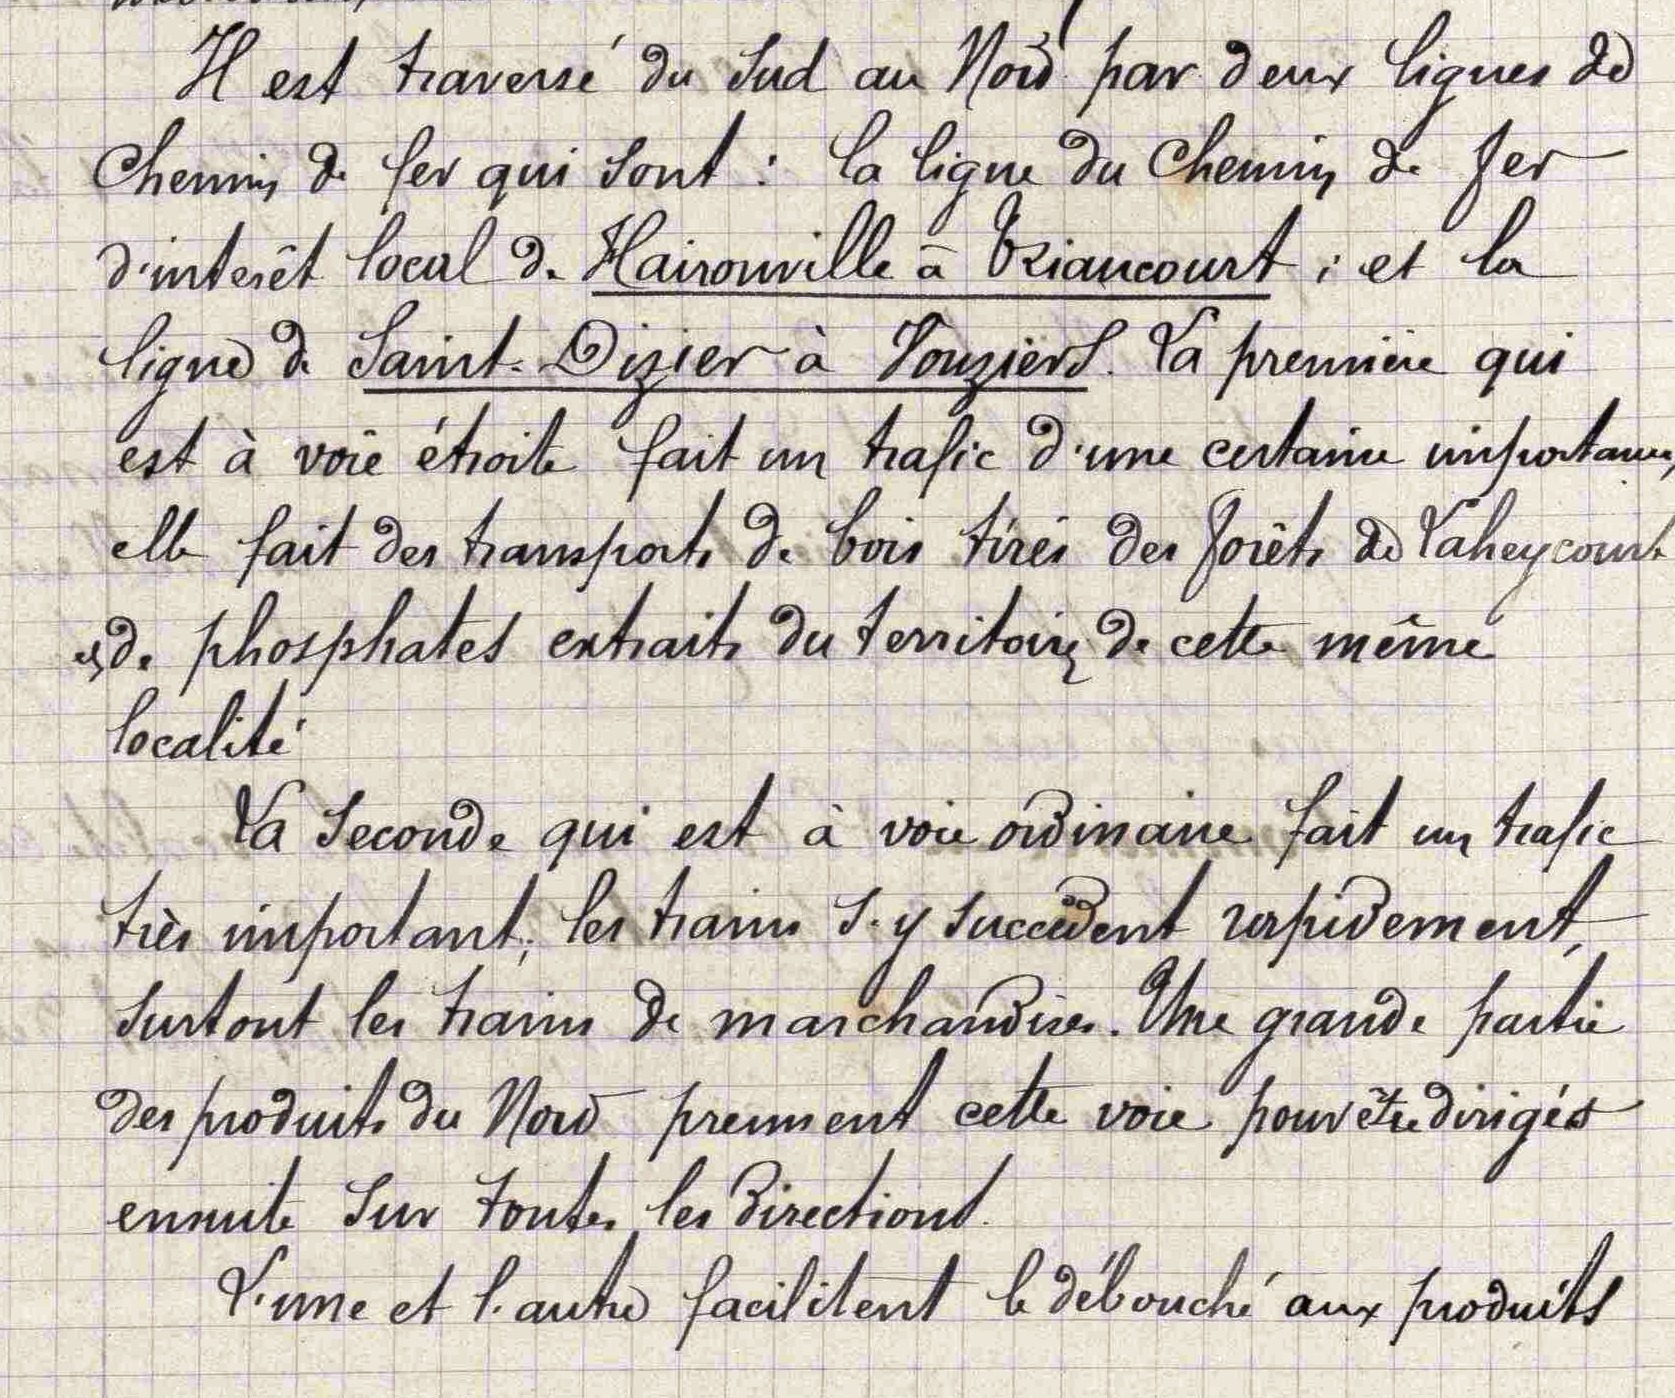 Il est traversé du Sud au Nord par deux lignes de
Chemin de fer qui sont : la ligne du Chemin de fer
d'interêt local de Haironville à Triaucourt ; et la
ligne de Saint-Dizier à Vouziers. La première qui
est à voie étroite fait un trafic d'une certaine importance,
elle fait des transports de bois tirés des forêts de Laheycourt
et de phosphates extraits du territoire de cette même
localité
La seconde qui est à voie ordinaire fait un trafic
très important, les trains s'y succèdent rapidement,
surtout les trains de marchandises. Une grande partie
des produits du Nord prennent cette voie pour être dirigés
ensuite sur toutes les directions.
L'une et l'autre facilitent le débouché aux produits